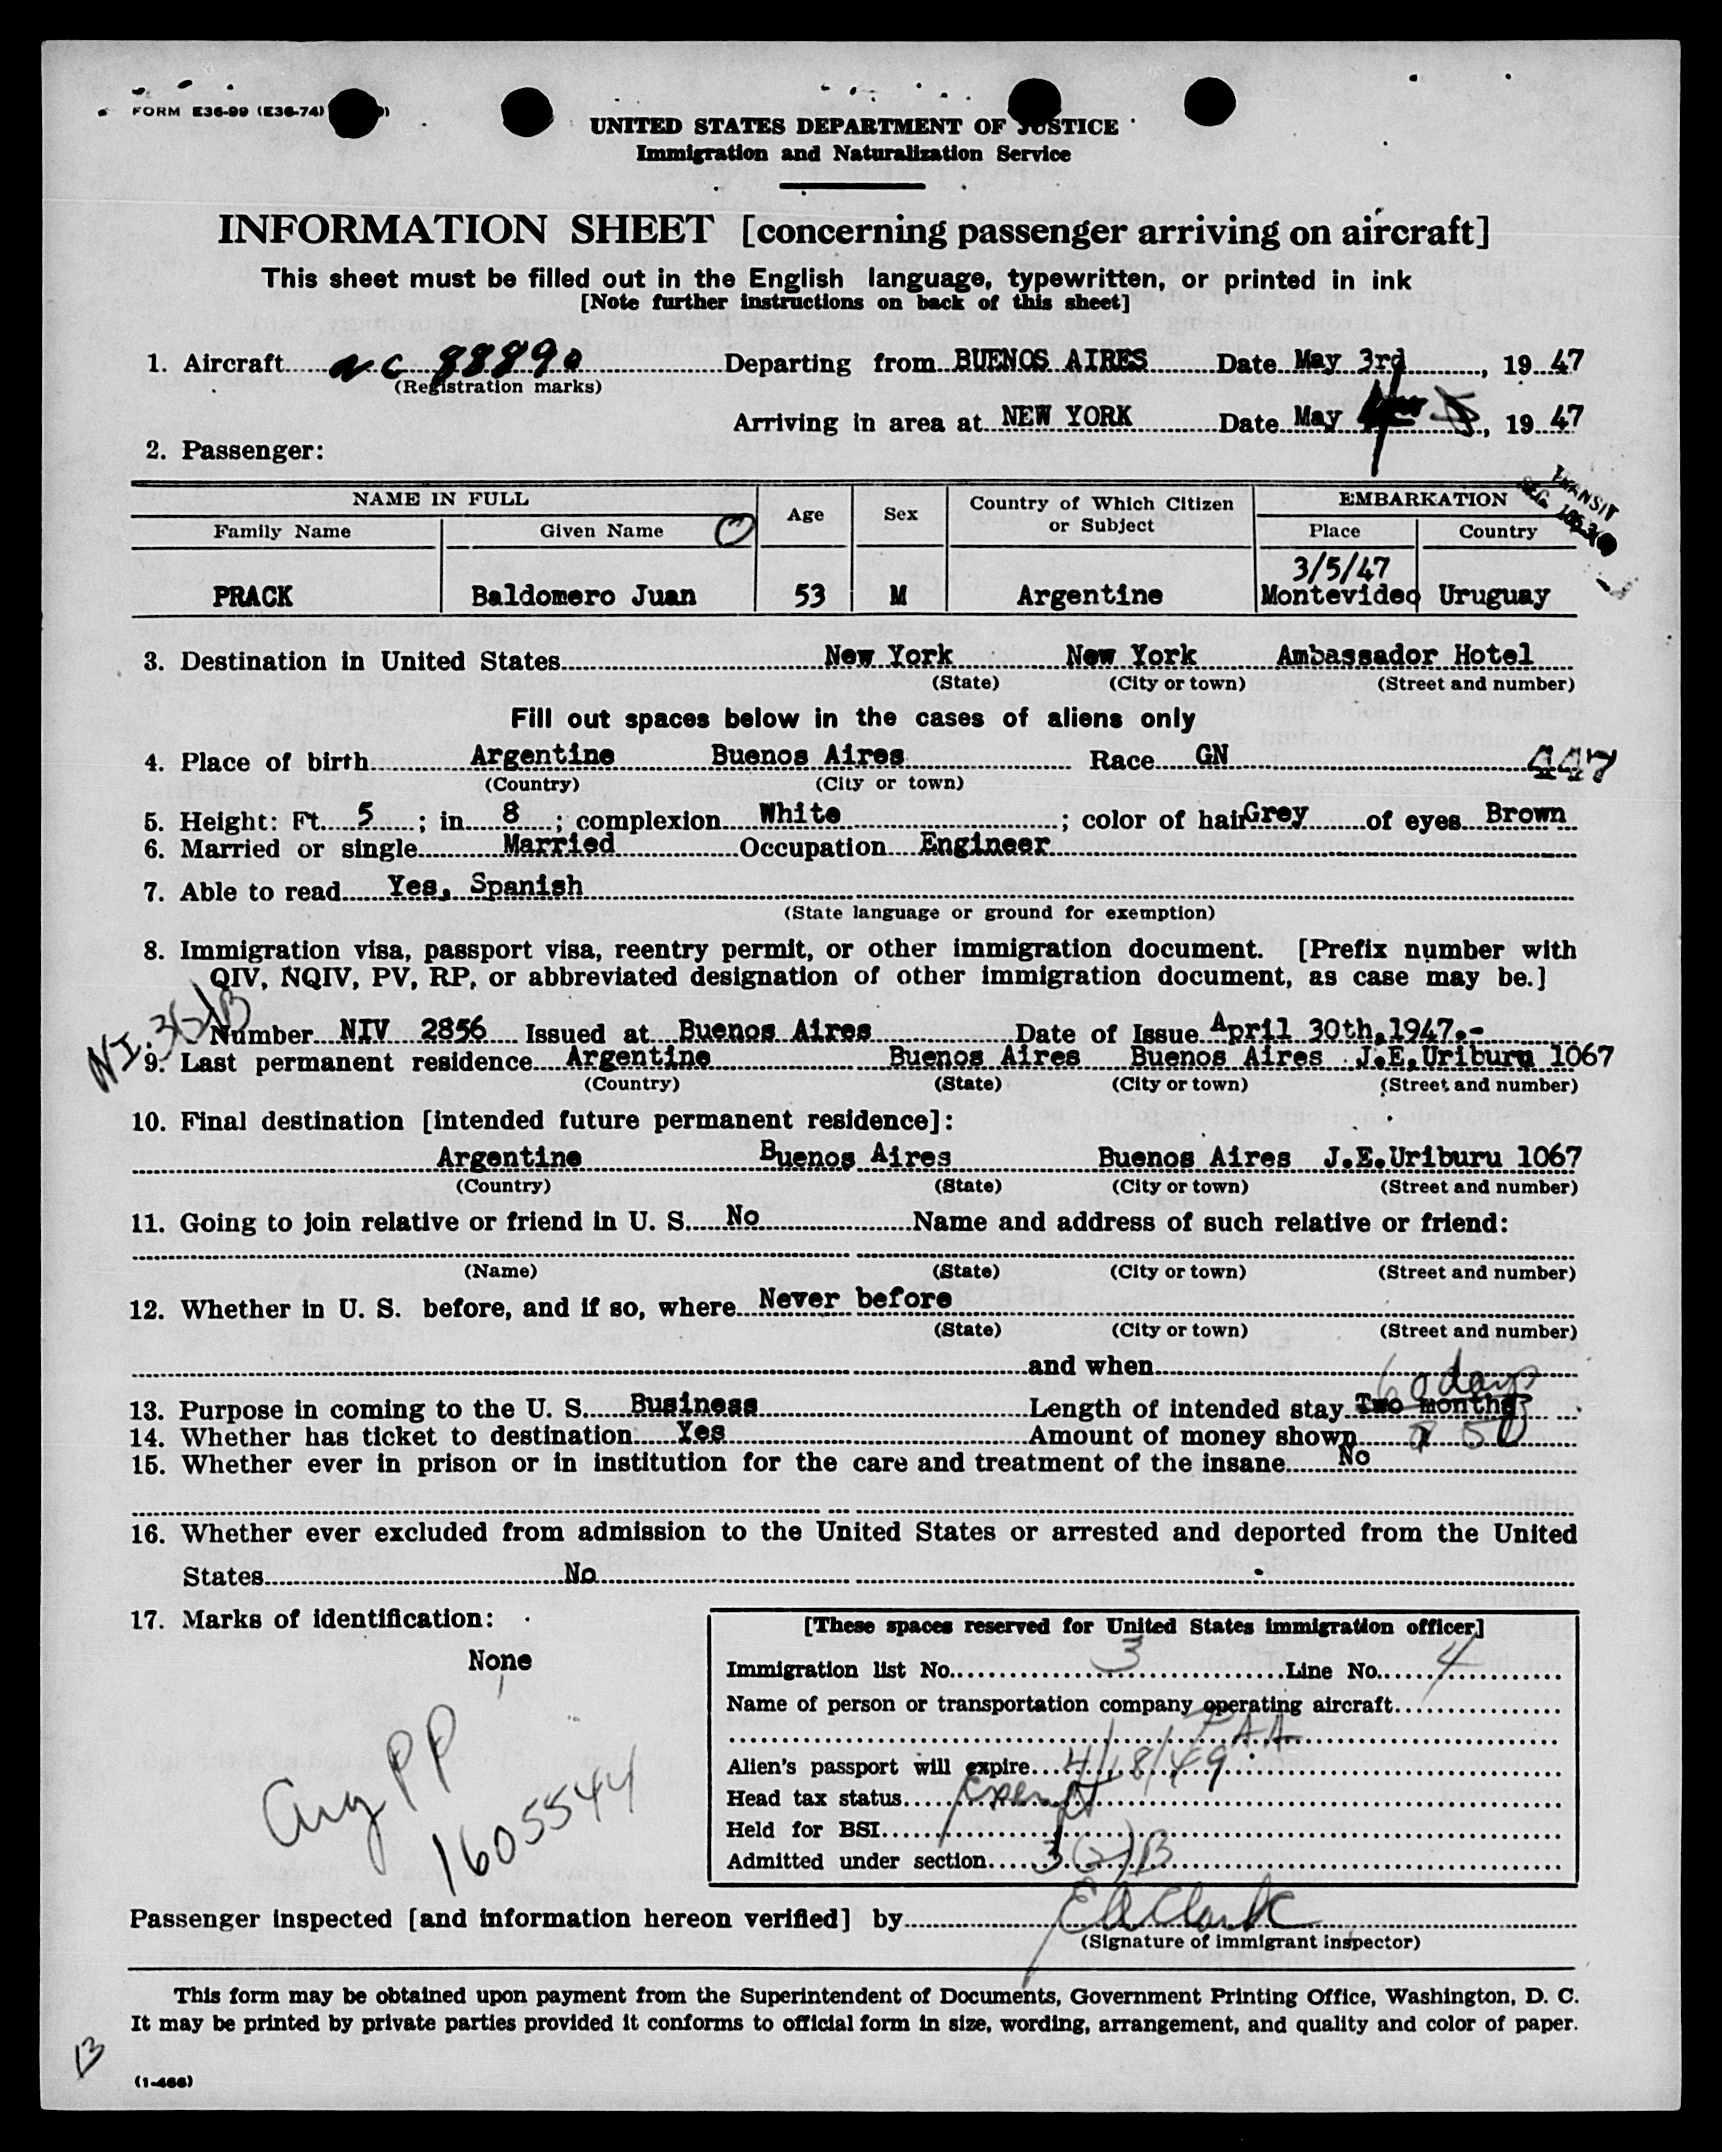 FORM E36-99 (E36-74)
UNITED STATES DEPARTMENT OF JUSTICE
Immigration and Naturalization Service
INFORMATION SHEET [concerning passenger arriving on aircraft]
This sheet must be filled out in the English language, typewritten, or printed in ink
[Note further instructions on back of this sheet]
1. Aircraft NC 88890 Departing from BUENOS AIRES Date May 3rd, 19 47
(Registration marks)
Arriving in area at NEW YORK Date May 5, 19 47
2. Passenger:
NAME IN FULL Age Sex Country of Which Citizen or Subject EMBARKATION TRANSIT
Family Name Given Name Place Country
3/5/47
PRACK Baldomero Juan 53 M Argentine Montevideo Uruguay
3. Destination in United States New York New York Ambassador Hotel
(State) (City or town) (Street and number)
Fill out spaces below in the cases of aliens only
4. Place of birth Argentine Buenos Aires Race GN 447
(Country) (City or town)
5. Height: Ft. 5; in. 8; complexion White; color of hair Grey of eyes Brown
6. Married or single Married Occupation Engineer
7. Able to read Yes, Spanish
(State language or ground for exemption)
8. Immigration visa, passport visa, reentry permit, or other immigration document. [Prefix number with
QIV, NQIV, PV, RP, or abbreviated designation of other immigration document, as case may be.]
Number NIV 2856 Issued at Buenos Aires Date of Issue April 30th,1947.-
9. Last permanent residence Argentine Buenos Aires Buenos Aires J.E.Uriburu 1067
(Country) (State) (City or town) (Street and number)
10. Final destination [intended future permanent residence]:
Argentine Buenos Aires Buenos Aires J.E.Uriburu 1067
(Country) (State) (City or town) (Street and number)
11. Going to join relative or friend in U. S. No Name and address of such relative or friend:
(Name) (State) (City or town) (Street and number)
12. Whether in U. S. before, and if so, where Never before
(State) (City or town) (Street and number)
and when
60 days
13. Purpose in coming to the U. S. Business Length of intended stay Two months
14. Whether has ticket to destination Yes Amount of money shown 50
15. Whether ever in prison or in institution for the care and treatment of the insane No
16. Whether ever excluded from admission to the United States or arrested and deported from the United
States No
17. Marks of identification:
None
Arg PP
1605544
[These spaces reserved for United States immigration officer]
Immigration list No. 3 Line No. 4
Name of person or transportation company operating aircraft
P.A.A.
Alien's passport will expire 4/18/49
Head tax status exempt
Held for BSI
Admitted under section 3(2)B
Passenger inspected [and information hereon verified] by E A Clark
(Signature of immigrant inspector)
This form may be obtained upon payment from the Superintendent of Documents, Government Printing Office, Washington, D. C.
It may be printed by private parties provided it conforms to official form in size, wording, arrangement, and quality and color of paper.
13
(1-466)